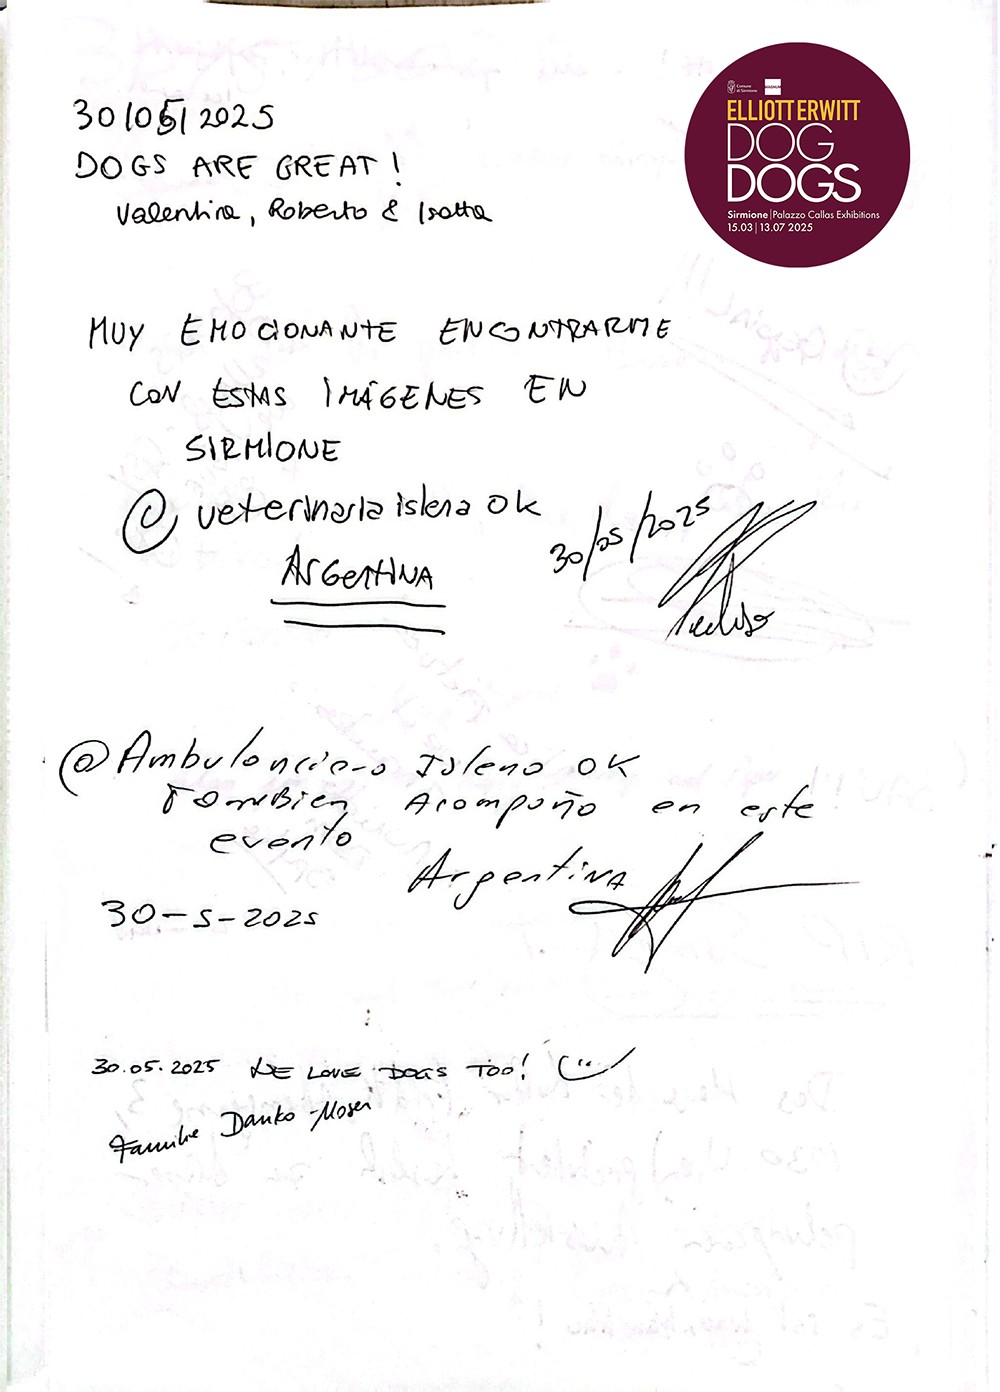 Comune
di Sirmione
MAGNUM
ELLIOTT ERWITT
DOG
DOGS
Sirmione | Palazzo Callas Exhibitions
15.03 | 13.07 2025
30/05/2025
DOGS ARE GREAT!
Valentina, Roberto & Isotta
MUY EMOCIONANTE ENCONTRARME
CON ESTAS IMÁGENES EN
SIRMIONE
@ veterinaria islena ok
ARGENTINA
30/05/2025
@ Ambulanciero Isleno OK
TAMBIEN Acompaño en este
evento
ArgentiNA
30-5-2025
30.05.2025 WE LOVE DOGS TOO!
Familie Danko-Moser